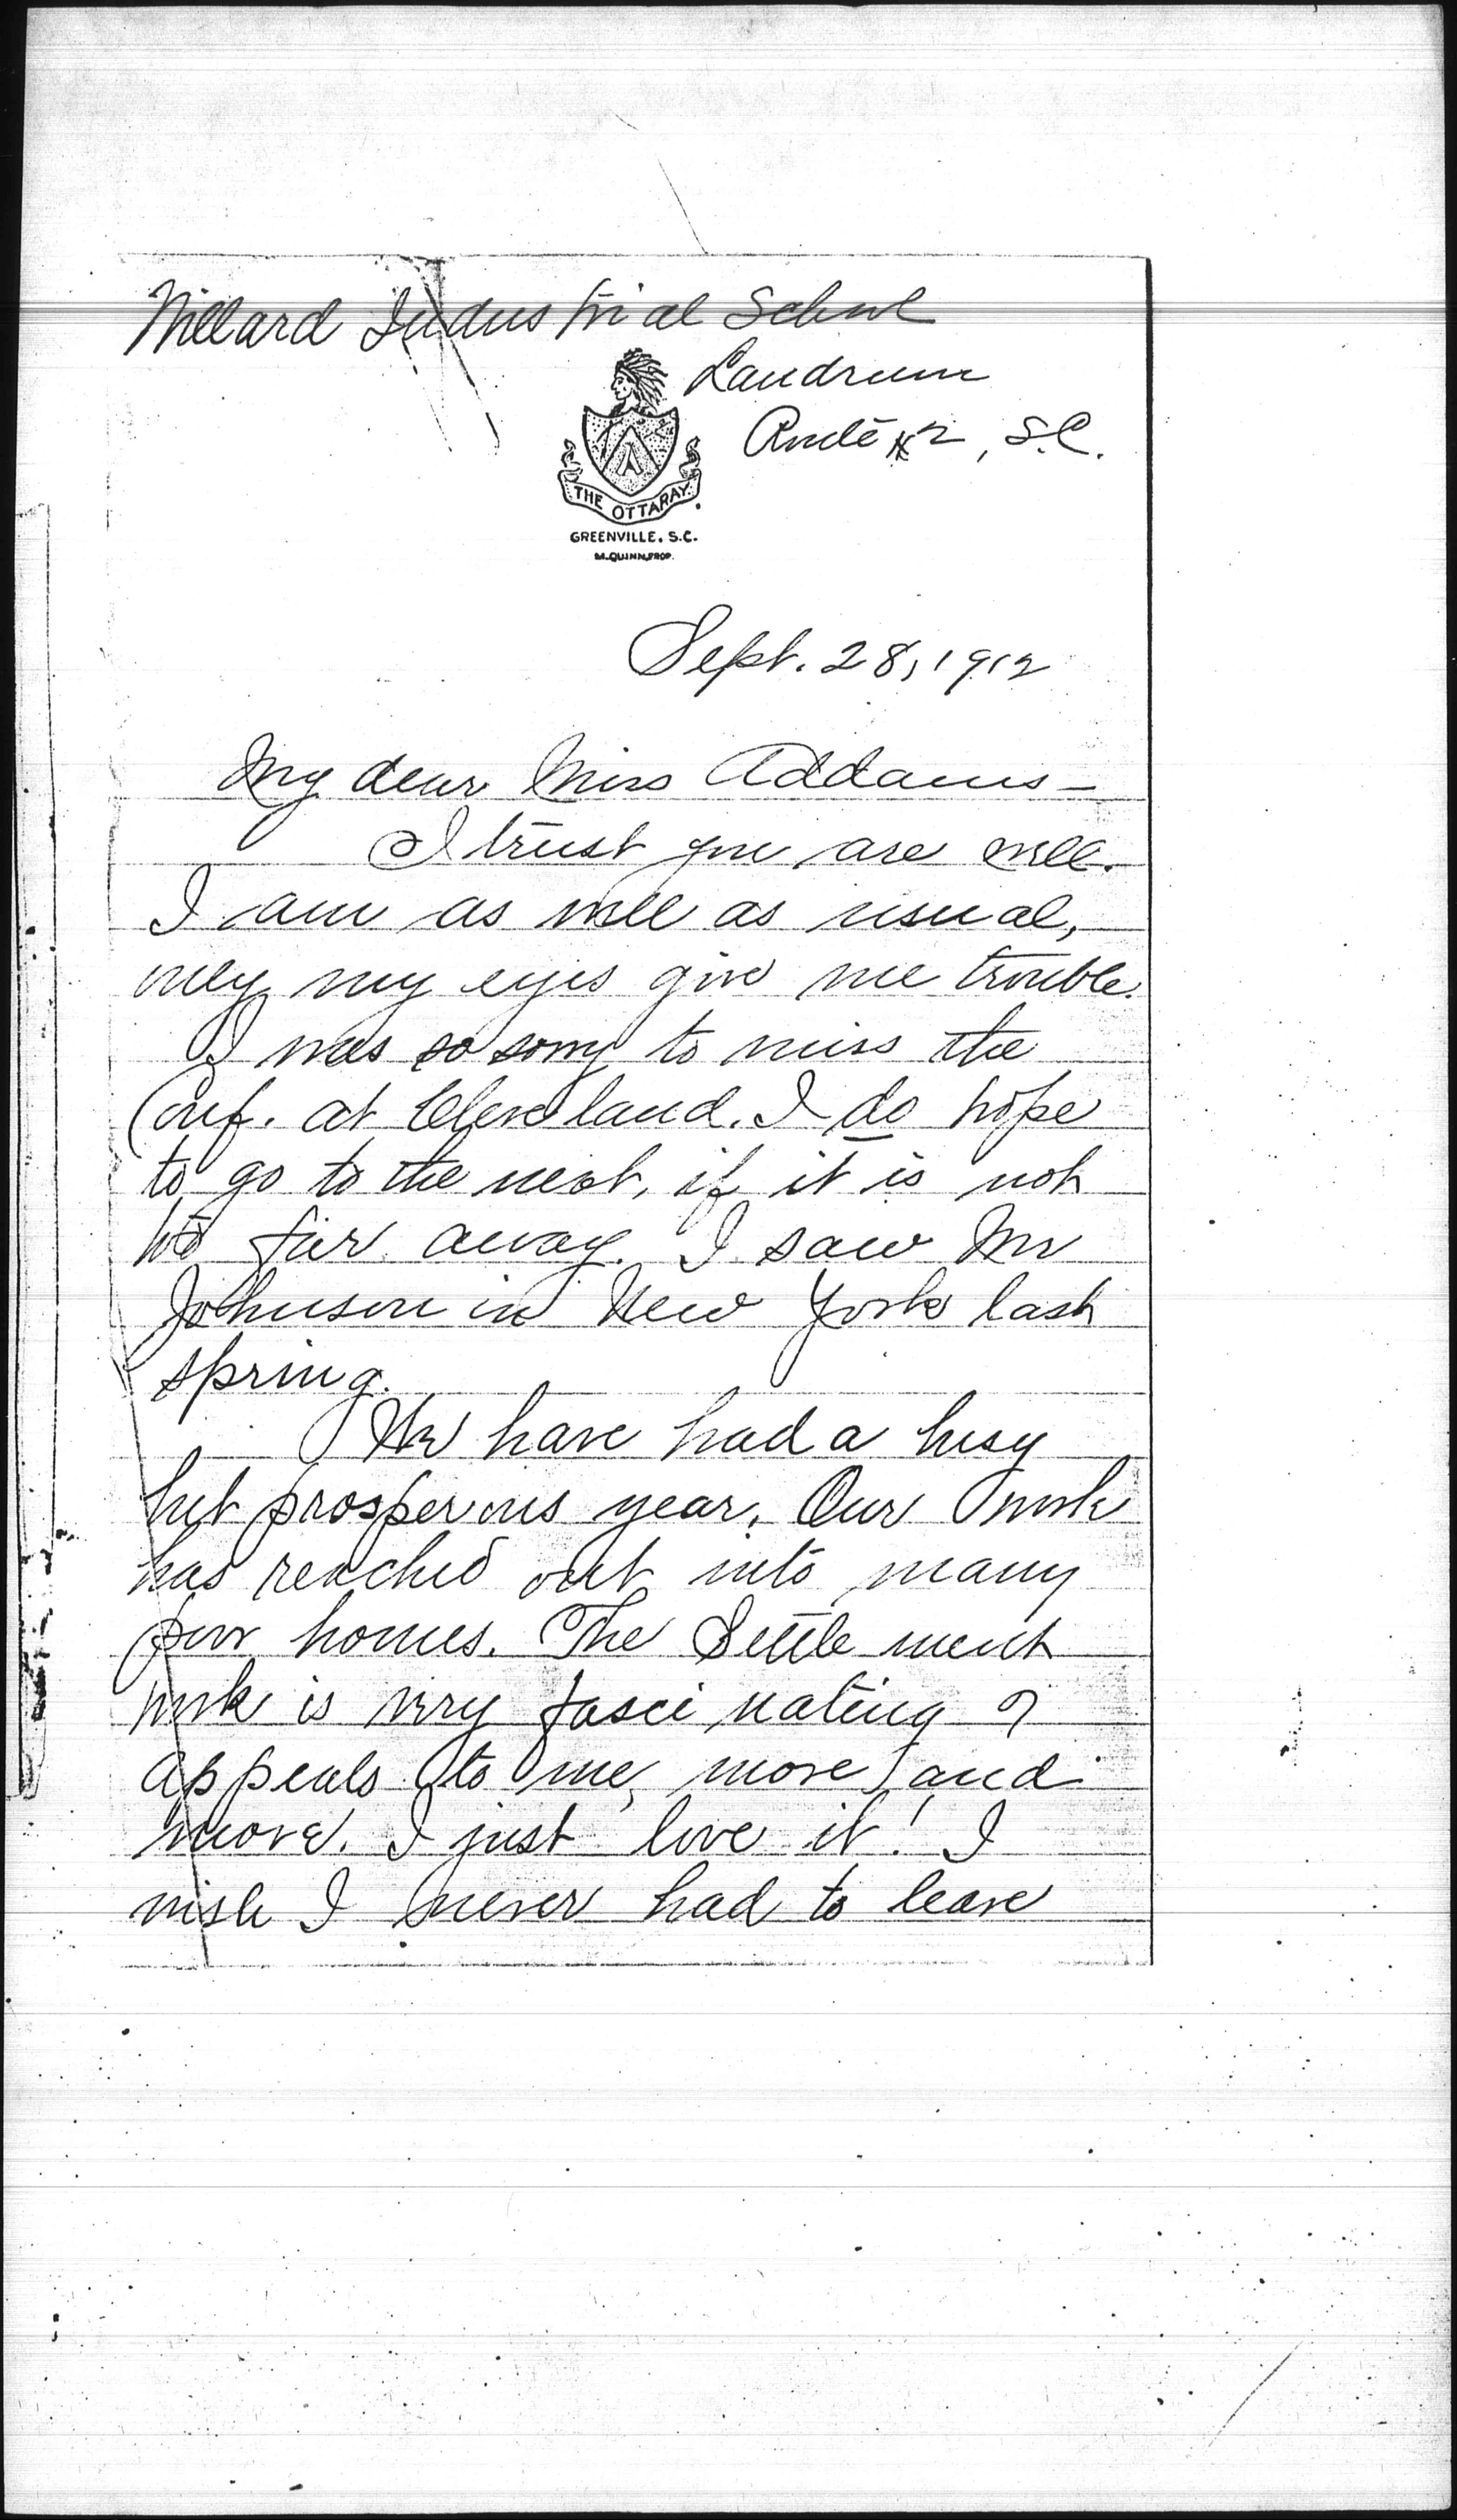 Willard Industrial School
Landrum
Route #2, S.C.
THE OTTARAY.
GREENVILLE, S.C.
M. QUINN, PROP.
Sept. 28, 1912
My dear Miss Addams –
I trust you are well.
I am as well as usual,
only my eyes give me trouble.
I was so sorry to miss the
Conf. at Cleveland. I do hope
to go to the next, if it is not
too far away. I saw Mr
Johnson in New York last
spring.
We have had a busy
but prosperous year. Our work
has reached out into many
poor homes. The Settlement
work is very fascinating &
appeals to me, more and
more. I just love it! I
wish I never had to leave